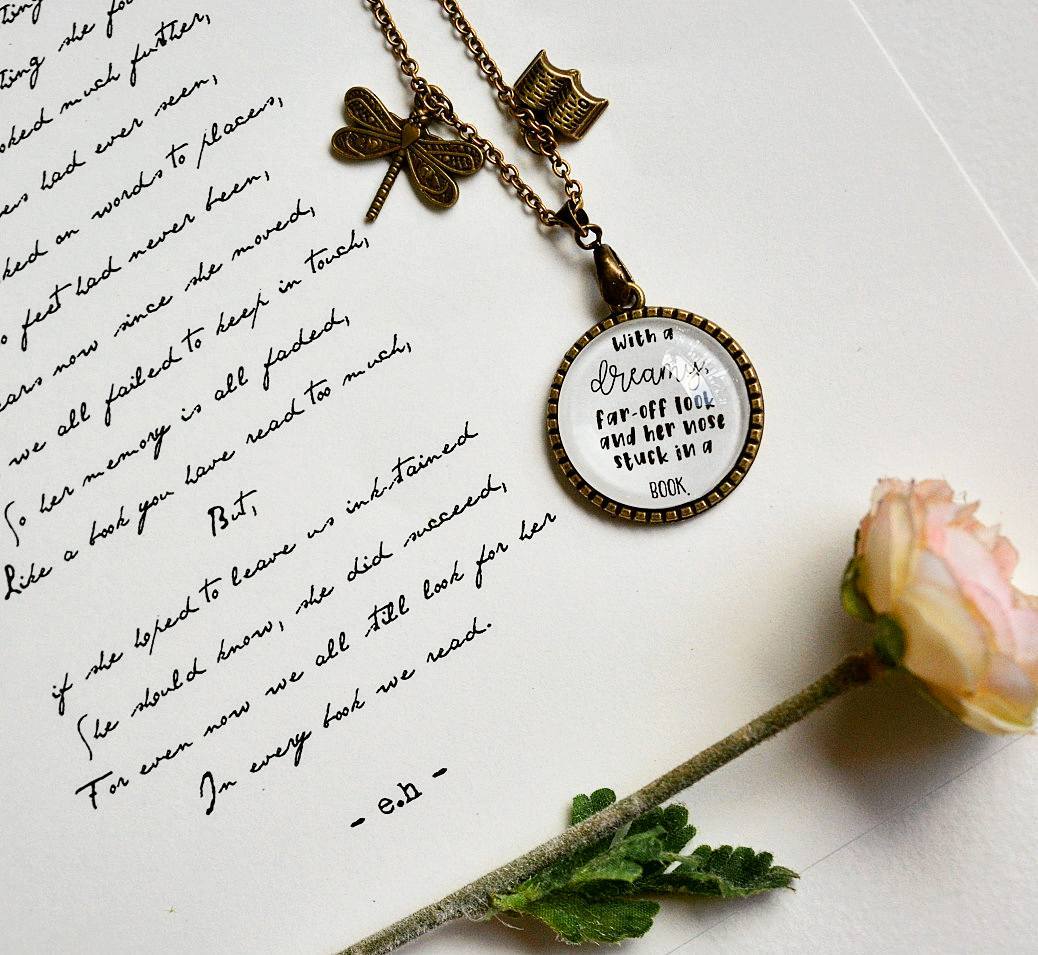 she
much further,
had ever seen,
on words to places,
feet had never been,
now since she moved,
we all failed to keep in touch,
So her memory is all faded,
Like a book you have read too much,
But,
if she hoped to leave us ink-stained
She should know, she did succeed,
For even now we all still look for her
In every book we read.
- e.h -
With a
dreamy,
far-off look
and her nose
stuck in a
BOOK.